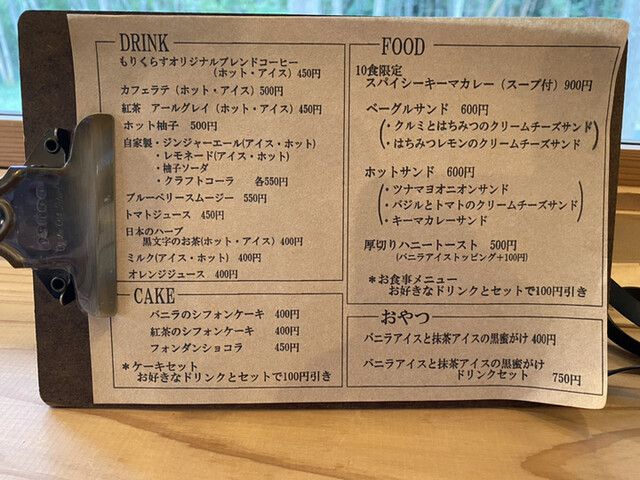 DRINK
もりくらすオリジナルブレンドコーヒー
(ホット・アイス) 450円
カフェラテ(ホット・アイス) 500円
紅茶 アールグレイ(ホット・アイス) 450円
ホット柚子 500円
自家製・ジンジャーエール(アイス・ホット)
・レモネード(アイス・ホット)
・柚子ソーダ
・クラフトコーラ 各550円
ブルーベリースムージー 550円
トマトジュース 450円
日本のハーブ
黒文字のお茶(ホット・アイス) 400円
ミルク(アイス・ホット) 400円
オレンジジュース 400円
CAKE
バニラのシフォンケーキ 400円
紅茶のシフォンケーキ 400円
フォンダンショコラ 450円
*ケーキセット
お好きなドリンクとセットで100円引き
FOOD
10食限定
スパイシーキーマカレー(スープ付) 900円
ベーグルサンド 600円
(・クルミとはちみつのクリームチーズサンド
・はちみつレモンのクリームチーズサンド)
ホットサンド 600円
(・ツナマヨオニオンサンド
・バジルとトマトのクリームチーズサンド
・キーマカレーサンド)
厚切りハニートースト 500円
(バニラアイストッピング+100円)
*お食事メニュー
お好きなドリンクとセットで100円引き
おやつ
バニラアイスと抹茶アイスの黒蜜がけ 400円
バニラアイスと抹茶アイスの黒蜜がけ
ドリンクセット 750円